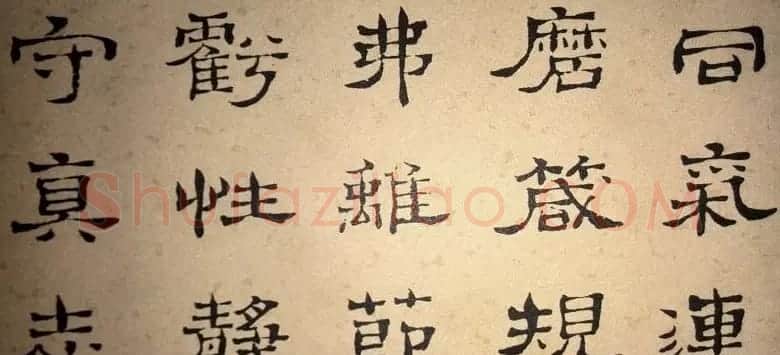 同氣連
磨箴規
弗離節
虧性靜
守真志
Shufaziliao.COM